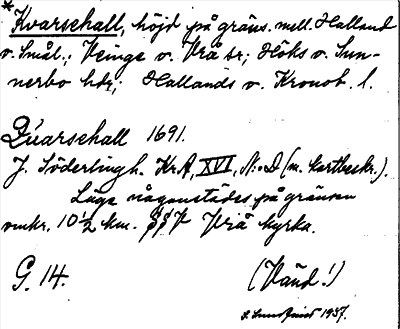 *Kvarschall, höjd på gräns. mell. Halland
o. Smål.; Veinge o. Vrå sr; Höks o. Sun-
nerbo hdr; Hallands o. Kronob. l.
Qvarschall 1691.
J. Söderlingh. Kr.A, XVI, N:o D (m. kartbeskr.).
Låge någonstädes på gränsen
omkr. 10 1/2 km. SSV Vrå kyrka.
G. 14.
(Vänd!)
1937.